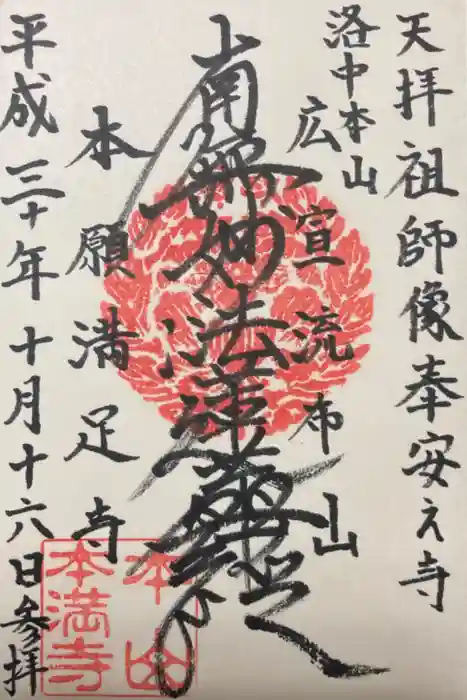 天拝祖師像奉安之寺
洛中本山
広宣流布山
南無妙法蓮華経
本願満足寺
平成三十年十月十六日参拝
本山
本満寺